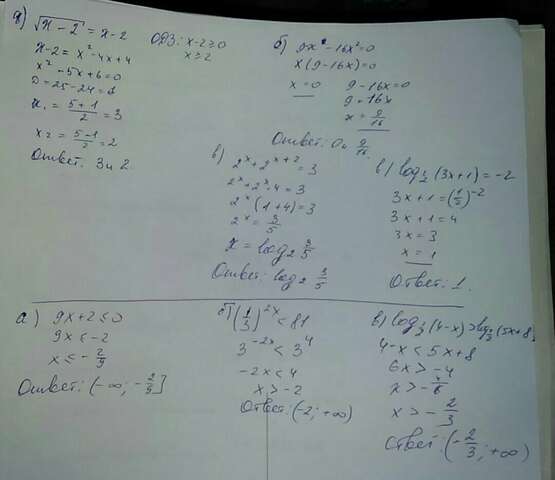 д) √x-2 = x-2
ОДЗ: x-2≥0
x≥2
x-2 = x²-4x+4
x²-5x+6=0
D=25-24=1
x₁ = 5+1/2 = 3
x₂ = 5-1/2 = 2
Ответ: 3 и 2.
б) 9x -16x²=0
x(9-16x)=0
x=0 9-16x=0
9=16x
x = 9/16
Ответ: 0 и 9/16.
в) 2ˣ+2ˣ⁺²=3
2ˣ+2ˣ·4=3
2ˣ(1+4)=3
2ˣ = 3/5
x = log₂ 3/5
Ответ: log₂ 3/5
в) log½(3x+1)=-2
3x+1=(1/2)⁻²
3x+1=4
3x=3
x=1
Ответ: 1.
а) 9x+2≤0
9x≤-2
x≤-2/9
Ответ: (-∞; -2/9]
б) (1/3)²ˣ<81
3⁻²ˣ<3⁴
-2x<4
x>-2
Ответ: (-2; +∞)
в) log (4-x)>log (5x+8)
4-x<5x+8
6x>-4
x>-4/6
x>-2/3
Ответ: (-2/3; +∞)